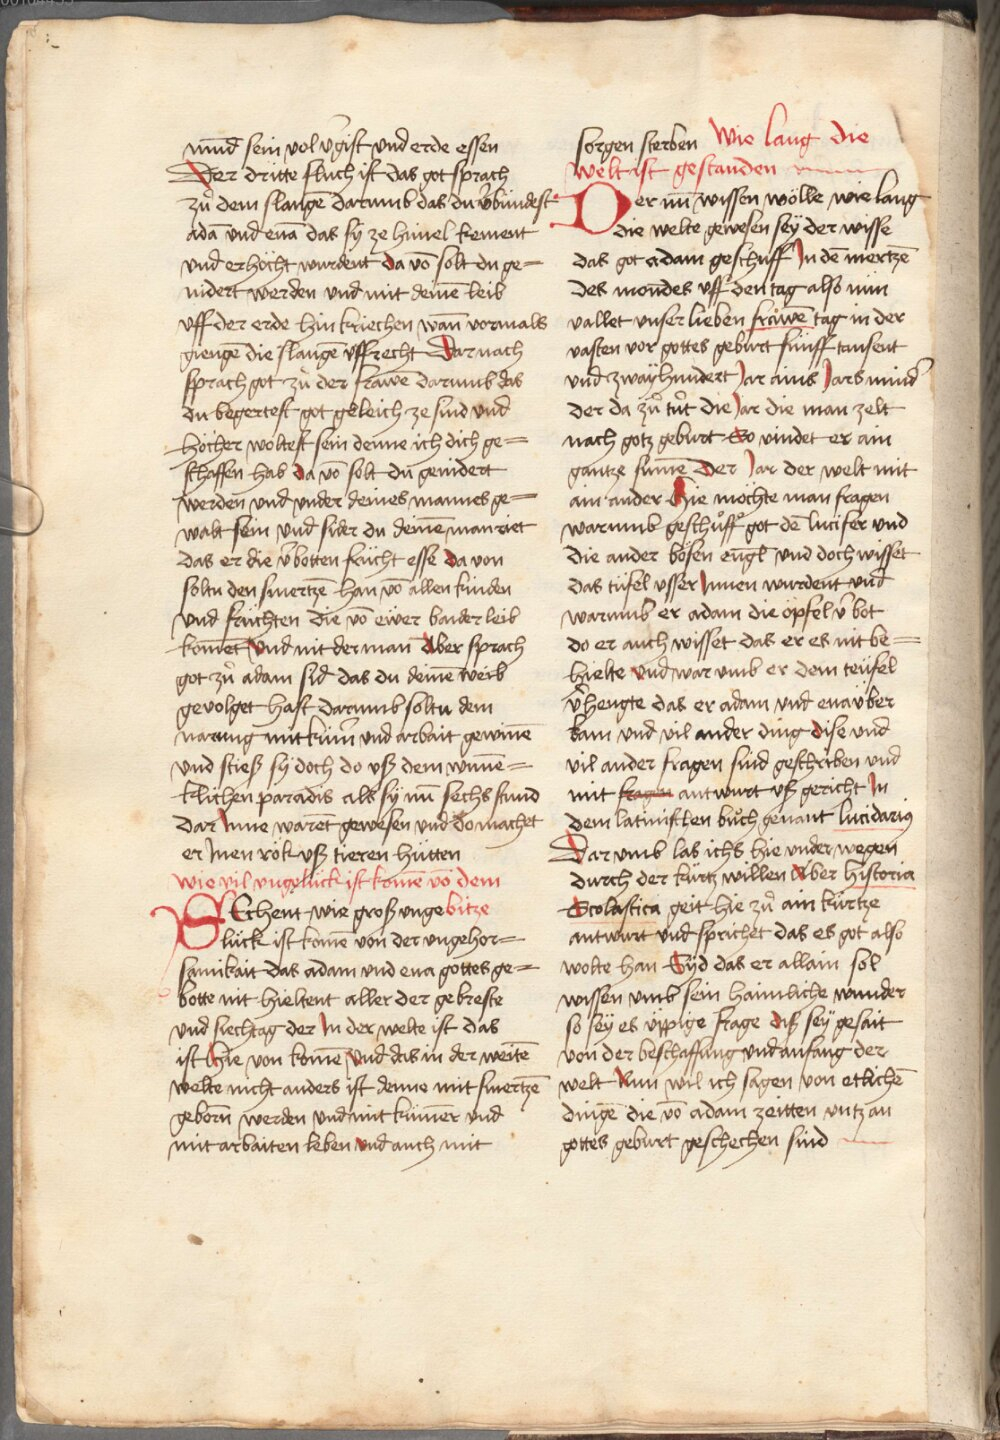 mund sein vol v̄gift und erde essen
Der dritte fluch ist das got sprach
zů dem slangē darumb das du v̄bundest
adā und euā das sy ze himel kement
und erhöcht wurdent da vō solt du ge=
nidert werden und mit deinē leib
uff der erde hin kriechen wan̄ vormals
gienge die slangē uffrecht Dar nach
sprach got zů der frawē darumb das
du begertest got geleich ze sind und
höcher woltest sein denne ich dich ge=
schaffen hab da vō solt du genidert
werden und under deines mannes ge=
walt sein und sider du deinē man riet
das er die v̄botten frücht esse da von
soltu den smertzē han vō allen kinden
und früchten die vō ewer bander leib
komēt und mit der man Aber sprach
got zů adam sid das du deinē weib
gevolget hast darumb soltu dem
narung mit kum̄ und arbait gewinē
und stiesz sy doch do usz dem wunē=
klichen paradis als sy nū sechs stund
dar Inne warēt gewesen und do machet
er Inen rök usz tieren hütten
wie vil ungelück ist komē vō dem
SEchent wie grosz unge bitze
lück ist komē von der ungehor=
samikait das adam und eua gottes ge=
botte nit hieltent aller der gebreste
und siechtag der In der welte ist das
ist hie von komē und das in der weitē
welte nicht anders ist denne mit smertzē
geborn̄ werden und mit kumēr und
mit arbaiten leben und auch mit
sorgen sterben Wie lang die
welt ist gestanden
Der nū wissen wölle wie lang
die welte gewesen sey der wisse
das got adam geschuff In dē mertzē
des mondes uff den tag also nun
vallet unser lieben frawē tag in der
vasten vor gottes geburt fünff tausent
und zwayhundert Jar ains Jars mind̄
der da zů tůt die Jar die man zelt
nach gotz geburt So vindet er ain
gantze sumē der Jar der welt mit
ain ander Hie möchte man fragen
warumb geschůff got dē lucifer und
die ander bösen engl̄ und doch wisset
das tüfel usser Innen wurdent und
warumb er adam die öpfel v̄bot
do er auch wisset das er es nit be=
hielte und war umb er dem teüfel
v̄hengte das er adam und eua über
kam und vil ander ding dise und
vil ander fragen sind geschriben und
mit fragen antwurt usz gericht In
dem latinisten bůch genant lucidariꝰ
Dar umb las ichs hie under wegen
durch der kürtz willen Aber historia
Scolastica geit hie zů ain kürtze
antwurt und sprichet das es got also
wolte han Syd das er allain sol
wissen umb sein haimliche wunder
so sey es üppige frage disz sey gesait
von der beschaffung und anfang der
welt Nun wil ich sagen von etlichē
dingē die vō adam zeitten untz an
gottes geburt geschechen sind